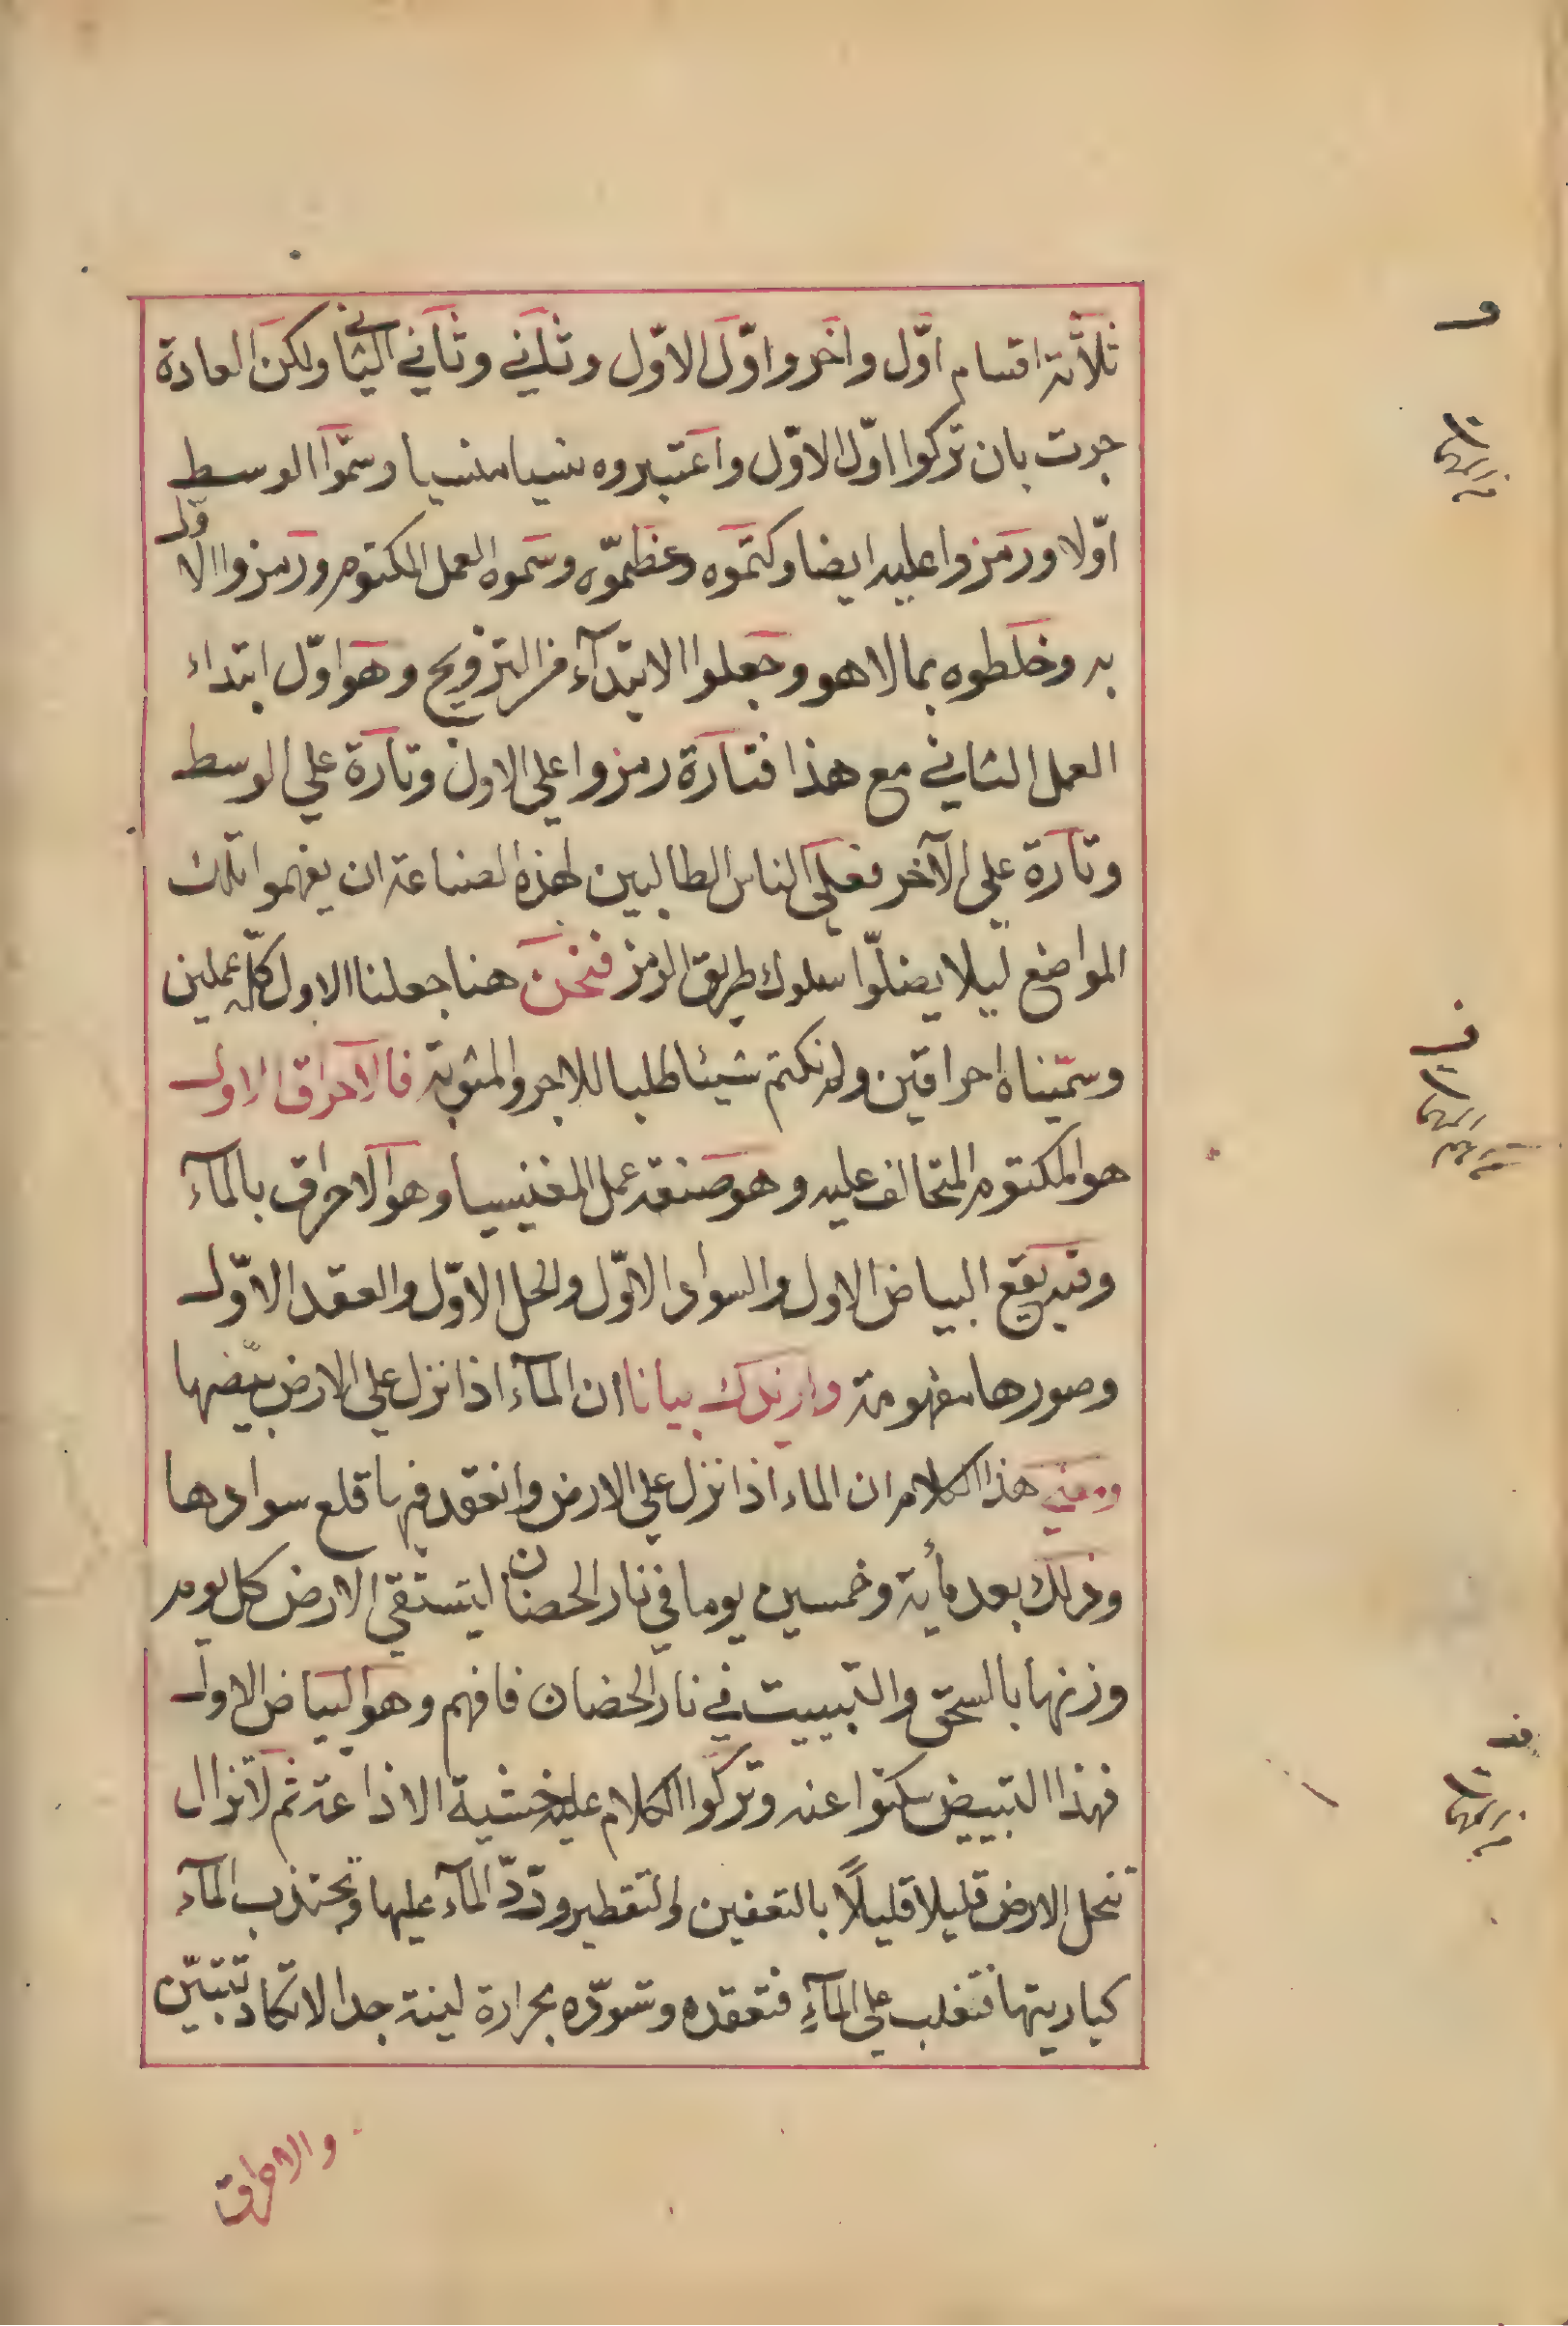 ثلاثة اقسام اوّل واخر واوّل الاوّل وثاني وثاني الثاني ولكن العادة
جرت بان تركوا اوّل الاوّل واعتبروه نسيا منسيا وسمّوا الوسط
اوّلا ورمزوا عليه ايضا وكتموه وعظمّوه وسموه العمل المكتوم ورمزوا الاول
به وخلطوه بما لا هو وجعلوا الابتدآء من التزويج وهو اوّل ابتداء
العمل الثاني مع هذا فتارة رمزوا علي الاول وتارة علي الوسط
وتارة علي الآخر فعلي الناس الطالبين لهذه الصناعة ان يفهموا تلك
المواضع ليلا يضلّوا سلوك طريق الرمز فنحن هنا جعلنا الاول كلّه عملين
وسمّيناه احراقين ولم نكتم شيئا طلبا للاجر والمثوبة فالاحراق الاول
هو المكتوم المتحالف عليه وهو صنعة عمل المغنيسيا وهو الاحراق بالمآء
وفيه يقع البياض الاول والسواد الاوّل والحل الاوّل والعقد الاوّل
وصورها مفهومة وازيدك بيانا ان المآء اذا نزل علي الارض بيّضها
ومعني هذا الكلام ان الماء اذا نزل علي الارض وانعقد فيها قلع سوادها
وذلك بعد مأية وخمسين يوما في نار الحضان ليستقي الارض كل يوم
وزنها بالسحق والتبييت في نار الحضان فافهم وهو البياض الاول
فهذا التبييض سكتوا عنه وتركوا الكلام عليه خشية الاذاعة ثم لا تزال
تنحل الارض قليلا قليلًا بالتعفين والتقطير وتردّ المآء عليها وتجتذب المآء
كباريتها فتغلب علي المآء فتعقده وتسوّده بحرارة لينة جدا لا تكاد تتبيّن
والاحراق